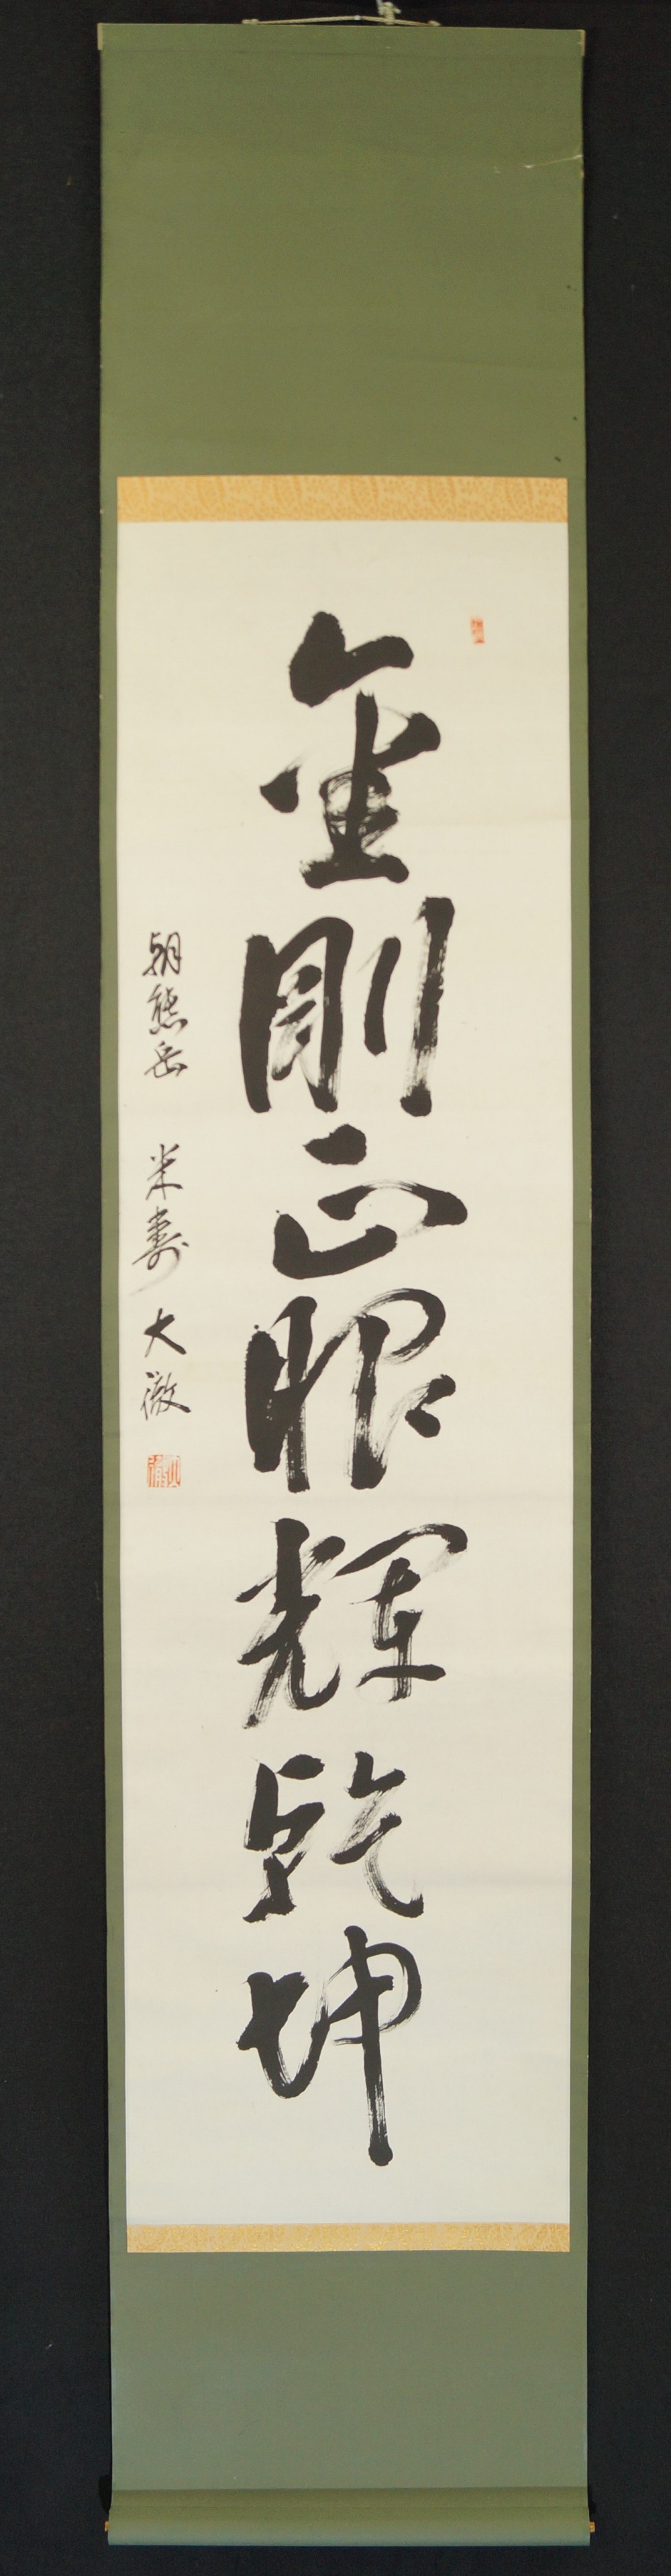 金剛正眼輝乾坤
朝熊岳 米寿 大徹